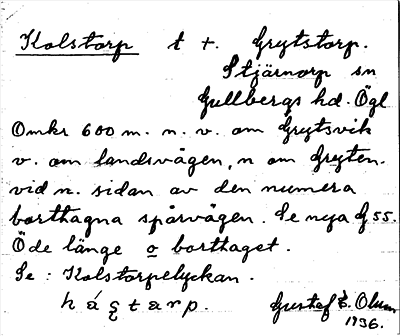 Kolstorp t +. Grytstorp.
Stjärnorp sn
Gullbergs hd. Ögl
Omkr 600 m. n. v. om Grytsvik
v. om landsvägen, n om Gryten.
vid n. sidan av den numera
borttagna spårvägen. Se nya G 55.
Öde länge o borttaget.
Se: Kolstorpelyckan.
Gustaf E. Olson
1936.